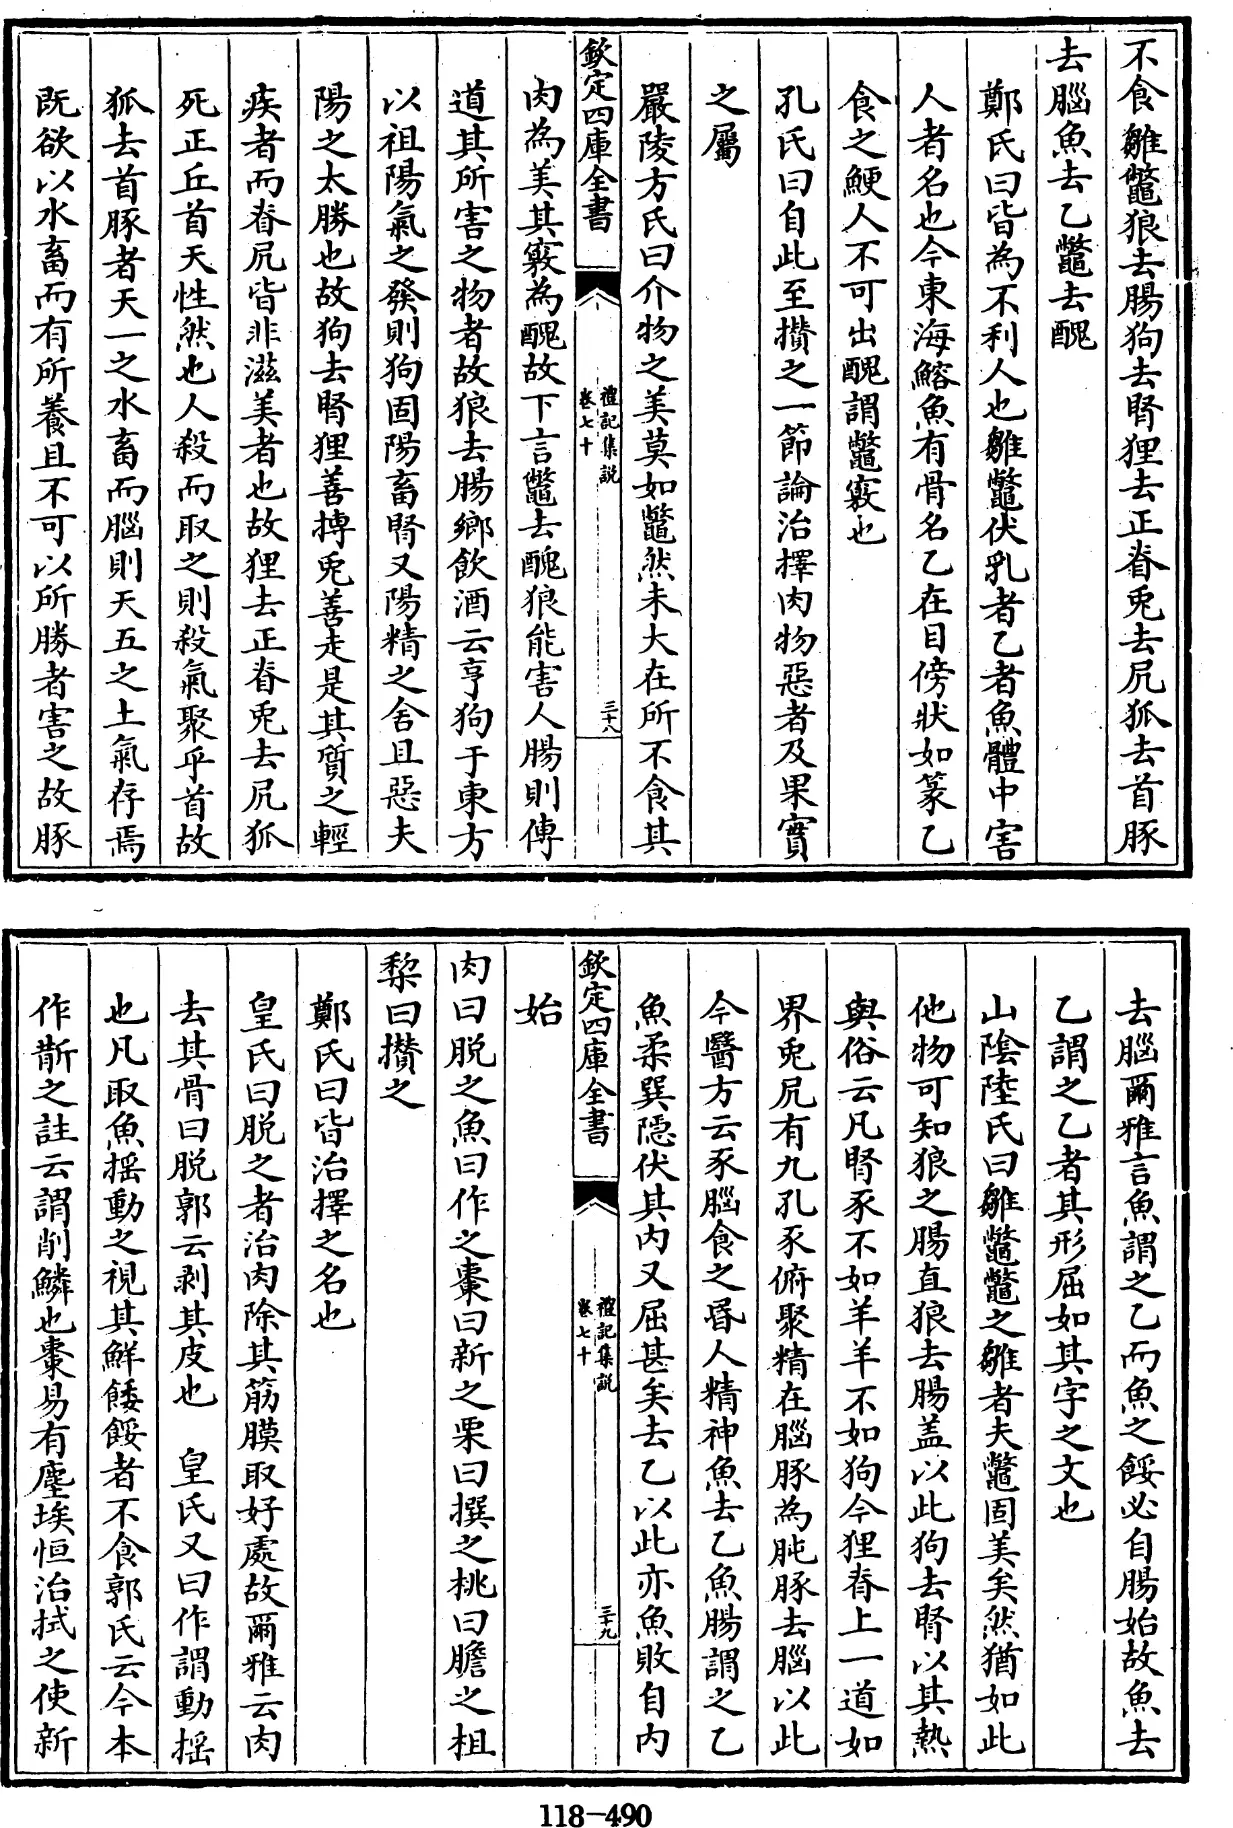 不食雛鼈狼去腸狗去腎狸去正脊兎去尻狐去首豚
去腦魚去乙鼈去醜
鄭氏曰皆為不利人也雛鼈伏乳者乙者魚體中害
人者名也今東海鰫魚有骨名乙在目傍狀如篆乙
食之鯁人不可出醜謂鼈竅也
孔氏曰自此至攅之一節論治擇肉物惡者及果實
之屬
嚴陵方氏曰介物之美莫如鼈然未大在所不食其
欽定四庫全書
禮記集說
卷七十
三十八
肉為美其竅為醜故下言鼈去醜狼能害人腸則傳
道其所害之物者故狼去腸鄉飲酒云亨狗于東方
以祖陽氣之發則狗固陽畜腎又陽精之舍且惡夫
陽之太勝也故狗去腎狸善搏兎善走是其質之輕
疾者而脊尻皆非滋美者也故狸去正脊兎去尻狐
死正丘首天性然也人殺而取之則殺氣聚乎首故
狐去首豚者天一之水畜而腦則天五之土氣存焉
既欲以水畜而有所養且不可以所勝者害之故豚
去腦爾雅言魚謂之乙而魚之餒必自腸始故魚去
乙謂之乙者其形屈如其字之文也
山陰陸氏曰雛鼈鼈之雛者夫鼈固美矣然猶如此
他物可知狼之腸直狼去腸盖以此狗去腎以其熱
與俗云凡腎豕不如羊羊不如狗今狸脊上一道如
界兎尻有九孔豕俯聚精在腦豚為肫豚去腦以此
今醫方云豕腦食之昬人精神魚去乙魚腸謂之乙
魚柔巽隱伏其内又屈甚矣去乙以此亦魚敗自内
欽定四庫全書
禮記集說
卷七十
三十九
始
肉曰脱之魚曰作之棗曰新之栗曰撰之桃曰膽之柤
棃曰攢之
鄭氏曰皆治擇之名也
皇氏曰脱之者治肉除其筋膜取好處故爾雅云肉
去其骨曰脱郭云剥其皮也　皇氏又曰作謂動揺
也凡取魚揺動之視其鮮餧餒者不食郭氏云今本
作斮之註云謂削鱗也棗易有塵埃恒治拭之使新
118-490